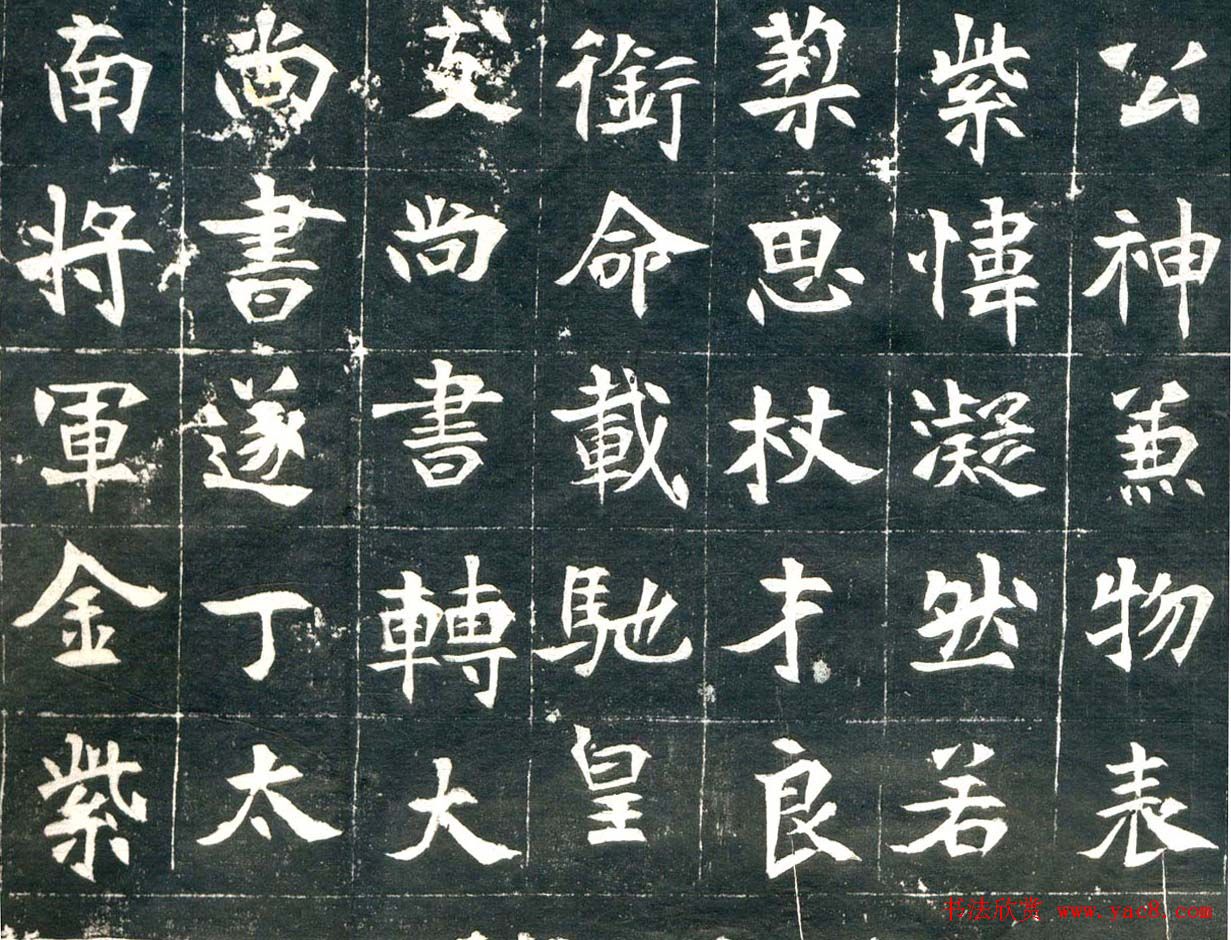 公神兼物表
紫幃凝然若
思杖才良
銜命載馳皇
支尚書轉大
尚書遂丁太
南将軍金紫
书法欣赏 www.yac8.com